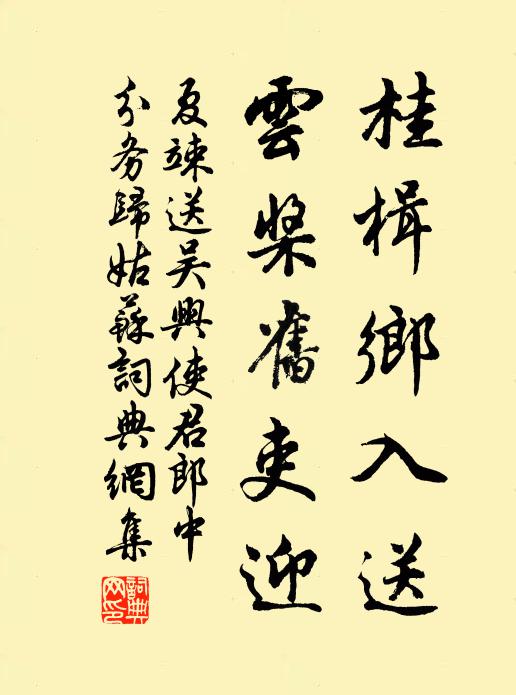 桂楫鄉入送
雲槳舊吏迎
夏竦送吳興使君郎中
分务歸姑蘇詞典網集
詞典网印